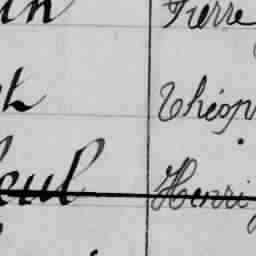 in Pierre
Théop
eul Henri